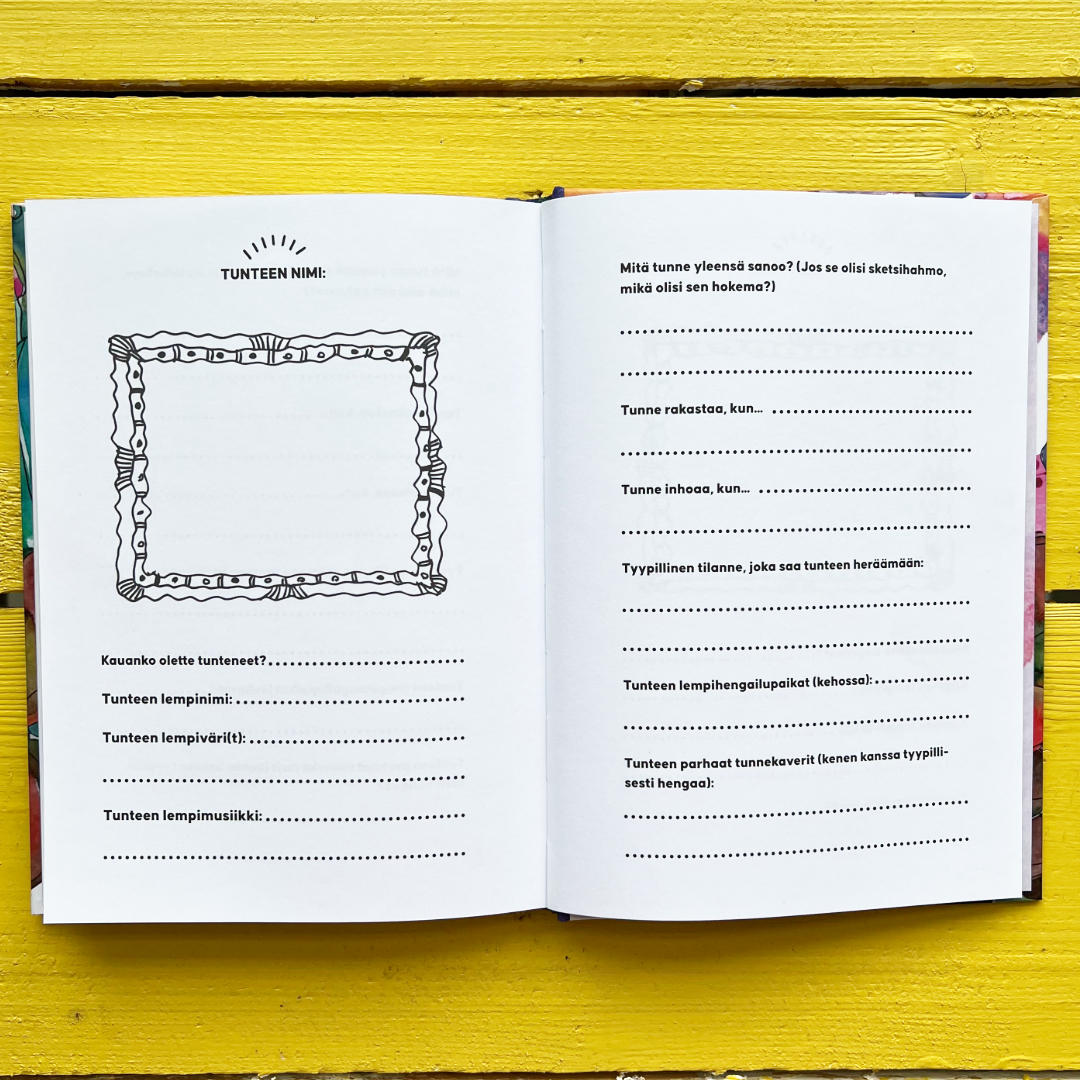 TUNTEEN NIMI:
Kauanko olette tunteneet?
Tunteen lempinimi:
Tunteen lempiväri(t):
Tunteen lempimusiikki:
Mitä tunne yleensä sanoo? (Jos se olisi sketsihahmo,
mikä olisi sen hokema?)
Tunne rakastaa, kun...
Tunne inhoaa, kun...
Tyypillinen tilanne, joka saa tunteen heräämään:
Tunteen lempihengailupaikat (kehossa):
Tunteen parhaat tunnekaverit (kenen kanssa tyypilli-
sesti hengaa):